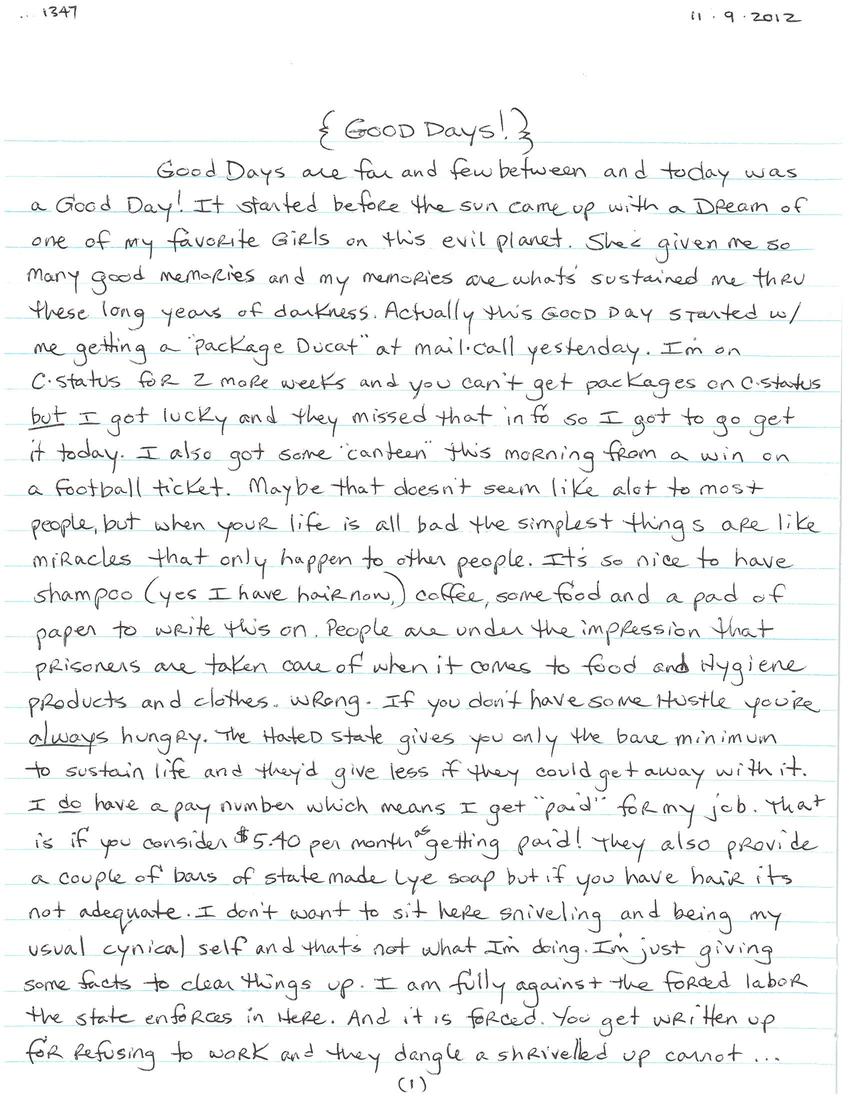 ... 1347
11 . 9 . 2012
{ GOOD DAYS! }
Good Days are far and few between and today was
a Good Day! It started before the sun came up with a Dream of
one of my favorite Girls on this evil planet. She's given me so
many good memories and my memories are whats' sustained me thru
these long years of darkness. Actually this GOOD DAY STARTED w/
me getting a "package Ducat" at mail.call yesterday. I'm on
C.status for 2 more weeks and you can't get packages on C.status
but I got lucky and they missed that info so I got to go get
it today. I also got some "canteen" this morning from a win on
a football ticket. Maybe that doesn't seem like alot to most
people, but when your life is all bad the simplest things are like
miracles that only happen to other people. It's so nice to have
shampoo (yes I have hair now,) coffee, some food and a pad of
paper to write this on. People are under the impression that
prisoners are taken care of when it comes to food and Hygiene
products and clothes. Wrong. If you don't have some Hustle you're
always hungry. The Hated State gives you only the bare minimum
to sustain life and they'd give less if they could get away with it.
I do have a pay number which means I get "paid" for my job. That
is if you consider $5.40 per month as getting paid! They also provide
a couple of bars of state made Lye soap but if you have hair its
not adequate. I don't want to sit here sniveling and being my
usual cynical self and thats not what I'm doing. I'm just giving
some facts to clear things up. I am fully against the forced labor
the state enforces in Here. And it is forced. You get written up
for refusing to work and they dangle a shrivelled up carrot ...
(1)